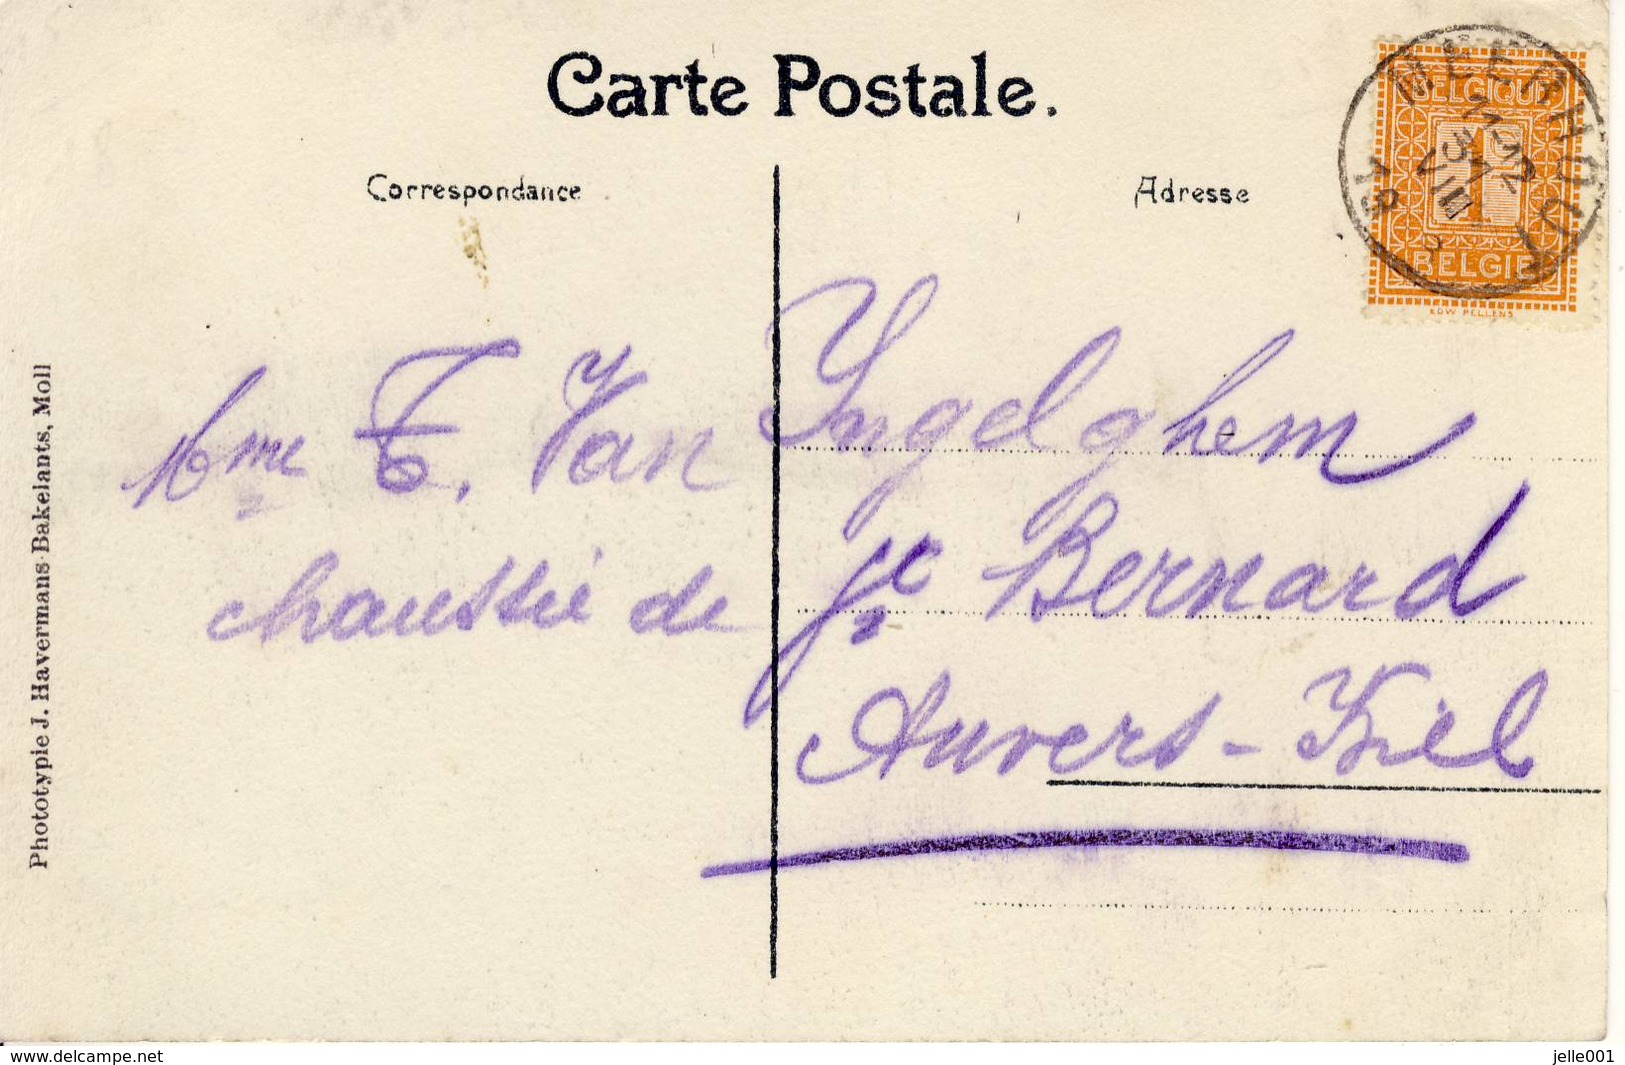 Carte Postale.
Correspondance
Adresse
BELGIQUE
1
BELGIË
EDW PELLENS
MEERHOUT
VIII
Mme T. Van Ingelghem
chaussée de St Bernard
Anvers-Kiel
Phototypie J. Havermans-Bakelants, Moll
www.delcampe.net
jelle001